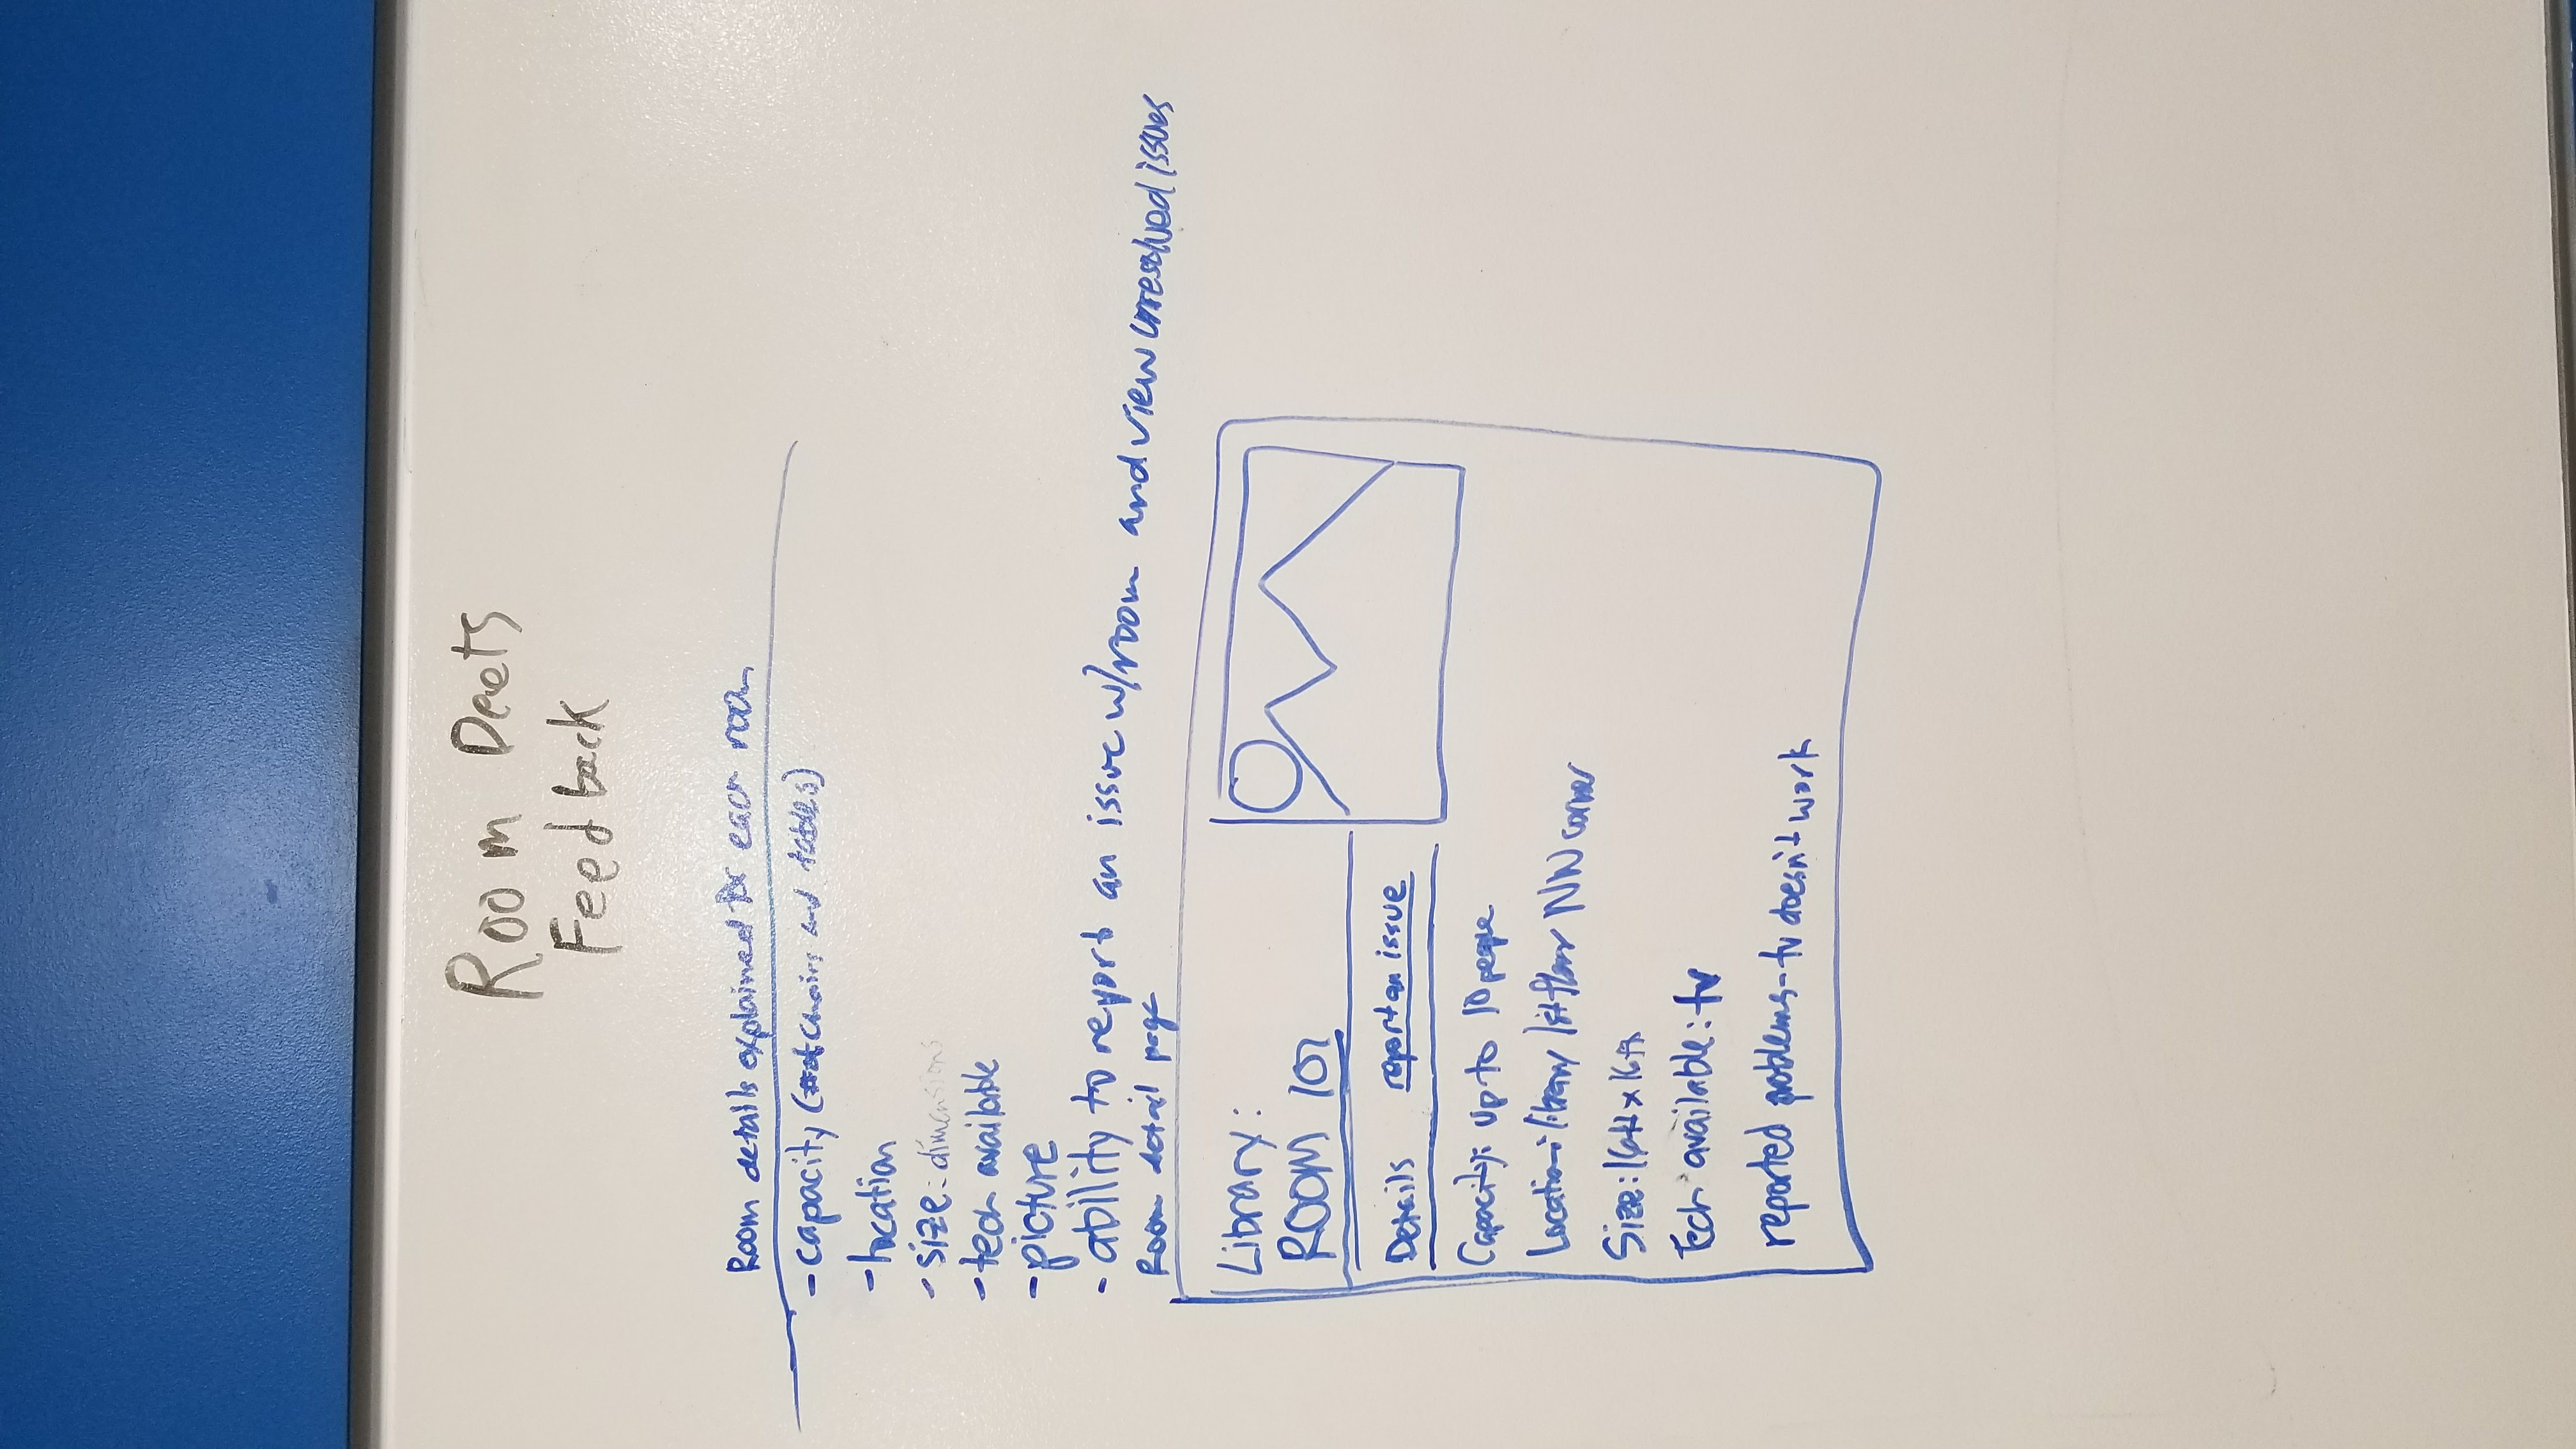 Room Deets
Feedback
Room details explained for each room
- capacity (# of chairs and tables)
- location
- size: dimensions
- tech available
- picture
- ability to report an issue w/room and view unresolved issues
Room detail page
Library:
ROOM 101
Details report an issue
Capacity: up to 10 people
Location: library 1st floor NW corner
Size: 16ft x 16ft
Tech available: tv
reported problems - tv doesn't work